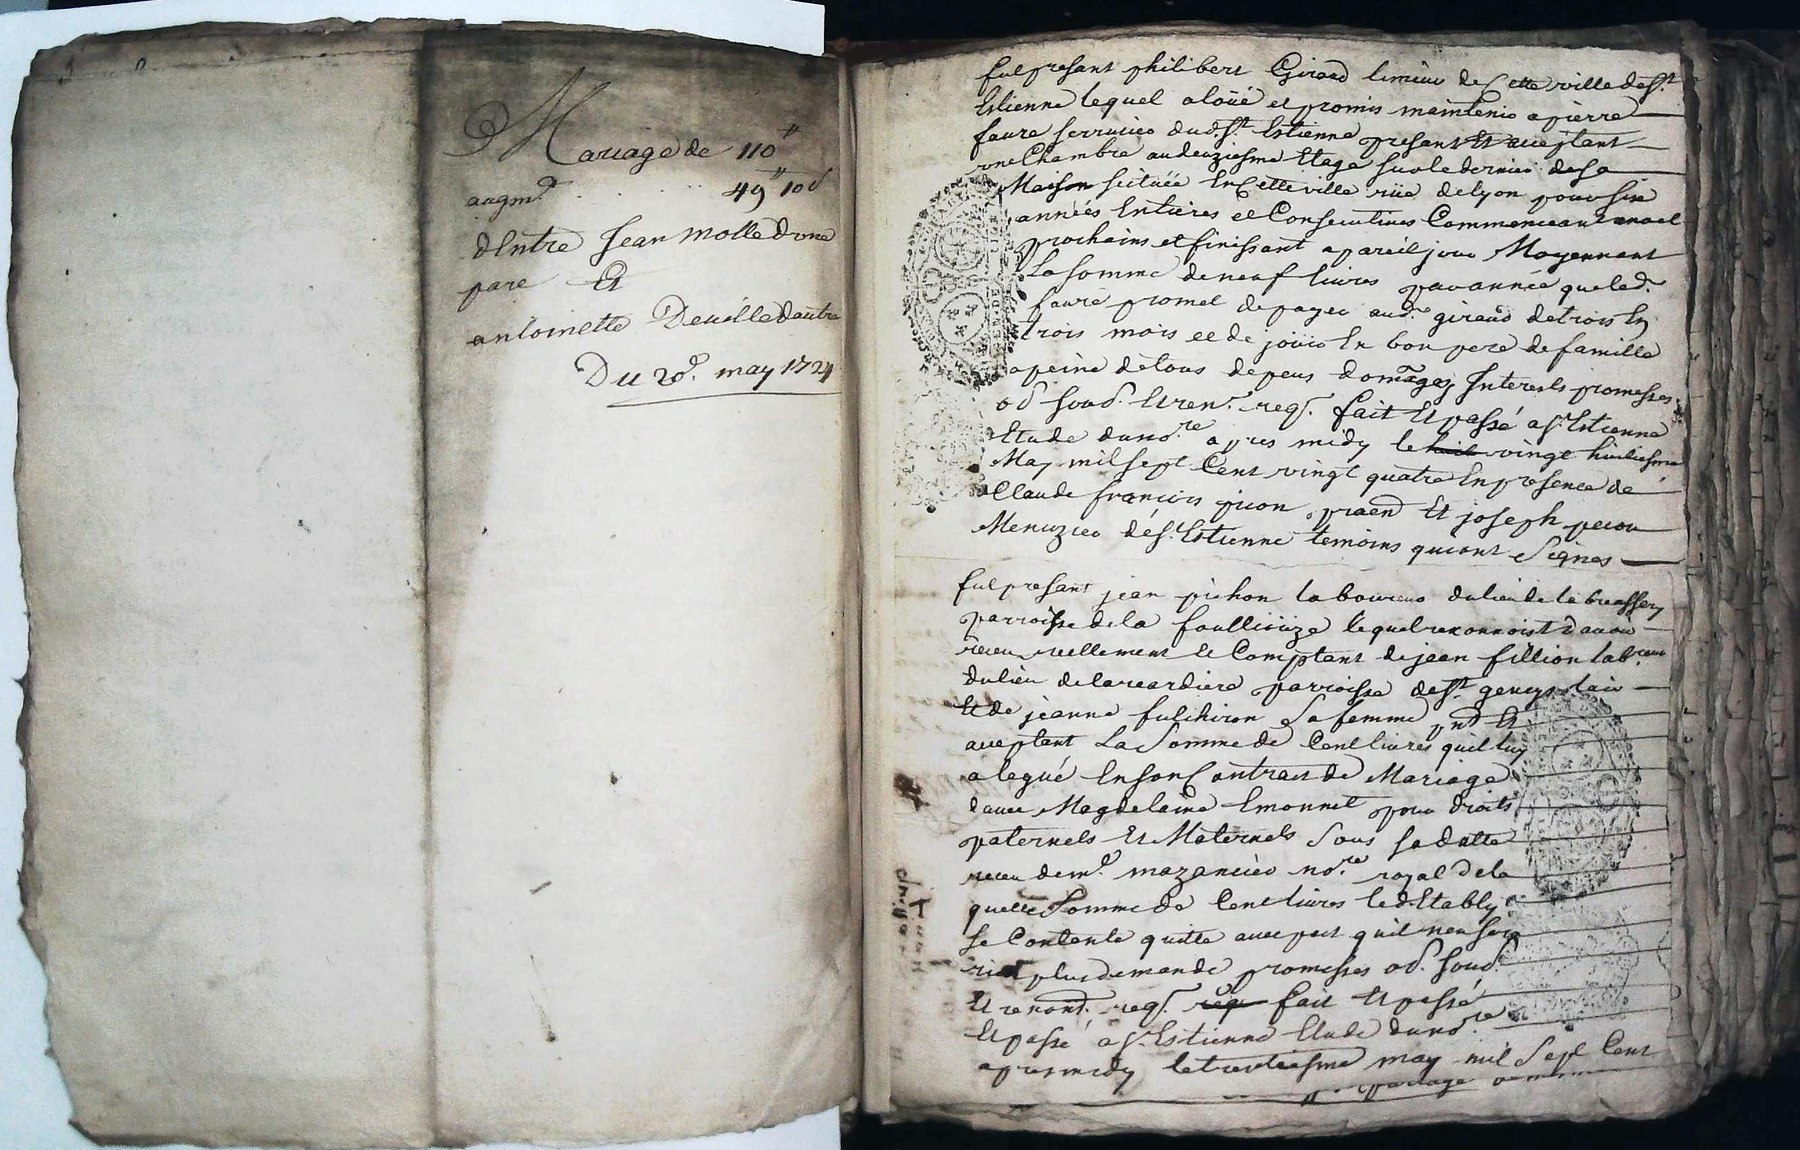 Mariage de 110ᵗᵗ
augmᵗ . . . . 49ᵗᵗ 10ᵈ
d'Entre Jean Molle d'une
part Et
antoinette Deville d'autre
Du 20ᵉ. may 1724
fut presant philibert Giraud limeur de Cette ville de Sᵗ
Estienne lequel a loüé et promis maintenir a pierre
faure serrurier dud. Sᵗ. Estienne presant Et acceptant
une Chambre au deuziesme Etage sur le dernier de sa
Maison scituée En Cette ville rüe de lyon pour six
années Entieres et Consecutives Commenceant a noel
prochains et finissant a pareil jour Moyennant
La somme de neuf livres par année que led.
faure promet de payer aud. giraud de trois En
trois mois et de joüir En bon pere de famille
a peine de tous depens domages Interests promesses
ob. soub. Et ren. req. fait Et passé a Sᵗ Estienne
Etude du noʳᵉ apres midy le huit vingt huitiesme
May mil sept Cent vingt quatre En presence de
Claude françois prien Et joseph peron
Menuzier de Sᵗ. Estienne temoins qui ont signés
fut presant jean pichon laboureur du lieu de la
parroisse de la foullieuze lequel reconnoist d'avoir
receu reellement Et Comptant de jean fillion labʳᵉᵘʳ
du lieu de parroisse de Sᵗ geneys
Et de jeanne fulchiron sa femme pnᵗ Et
acceptant La Somme de Cent livres qu'il luy
a legué En son Contract de Mariage
avec Magdelaine Emonnet pour droits
paternels Et Maternels sous sa datte
receu de mᵉ. mazancieu noʳᵉ royal de la
quelle Somme de Cent livres led.
se Contente quitte avec pact qu'il n'en sera
rien plus demandé promesses ob. soub.
Et renont. req. req fait Et passé
Et passé a Sᵗ Estienne Etude du noʳᵉ
apres midy le trentiesme may mil Sept Cent